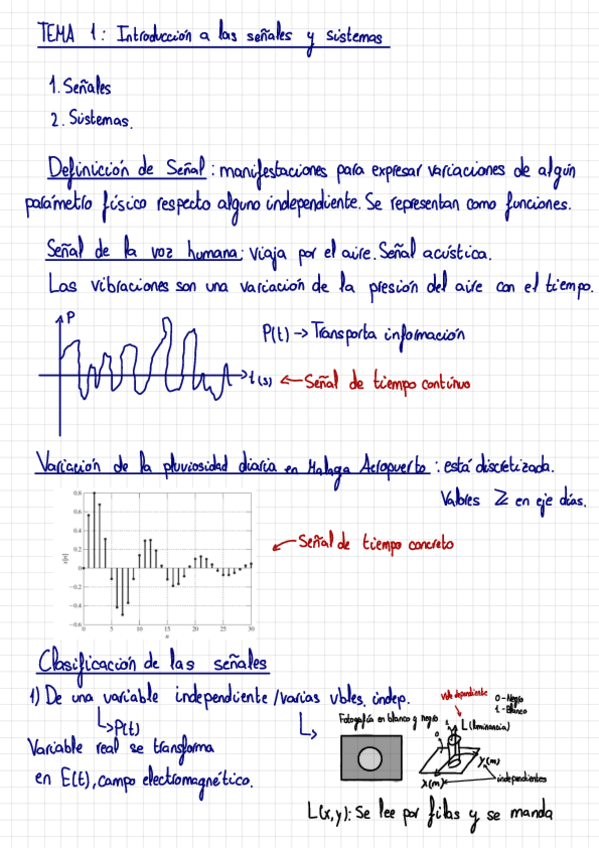 TEMA 1: Introducción a las señales y sistemas
1. Señales
2. Sistemas.
Definición de Señal: manifestaciones para expresar variaciones de algún
parámetro físico respecto alguno independiente. Se representan como funciones.
Señal de la voz humana: viaja por el aire. Señal acústica.
Las vibraciones son una variación de la presión del aire con el tiempo.
P
P(t) -> Transporta información
t(s) <- Señal de tiempo continuo
Variación de la pluviosidad diaria en Malaga Aeropuerto: está discretizada.
Valores ℤ en eje días.
0.8
0.6
0.4
0.2
0
-0.2
-0.4
-0.6
x[n]
0 5 10 15 20 25 30
n
<- Señal de tiempo concreto
Clasificación de las señales
1) De una variable independiente /varias vbles. indep.
↳ P(t)
Variable real se transforma
en E(t), campo electromagnético.
↳
Fotografía en blanco y negro
Vble dependiente
0-Negro
1-Blanco
1
0
L (luminancia)
y(m)
x(m)
independientes
L(x,y): Se lee por filas y se manda